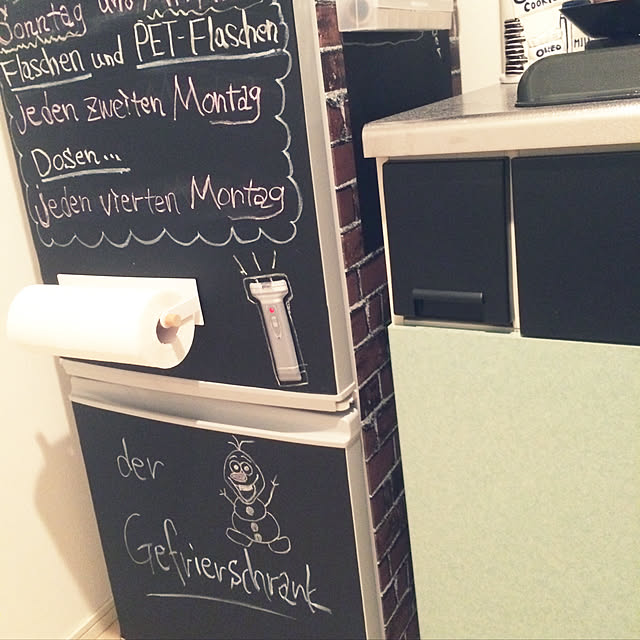 Sonntag und
Flaschen und PET-Flaschen
Jeden zweiten Montag
Dosen...
jeden vierten Montag
der
Gefrierschrank
COOKIE
OLEO